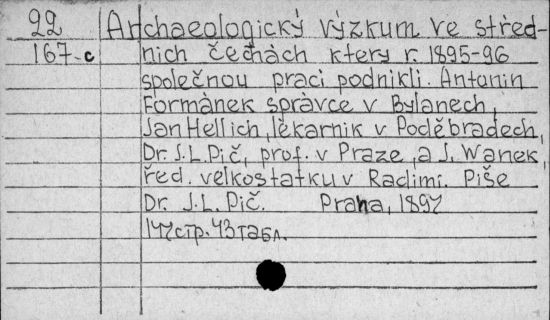 22 Archaeologický výzkum ve střed-
167-c nich čechách ktery r. 1895-96
společnou praci podnikli. Antonin
Formánek správce v Bylanech,
Jan Hellich, lékarnik v Poděbradech,
Dr. J. L. Pič, prof. v Praze, a J. Waněk,
řed. velkostatku v Radimi. Piše
Dr. J. L. Pič. Praha, 1897
147 стр. 43 табл.